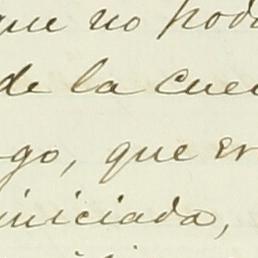 que no pod
de la cue
go, que er
iniciada,